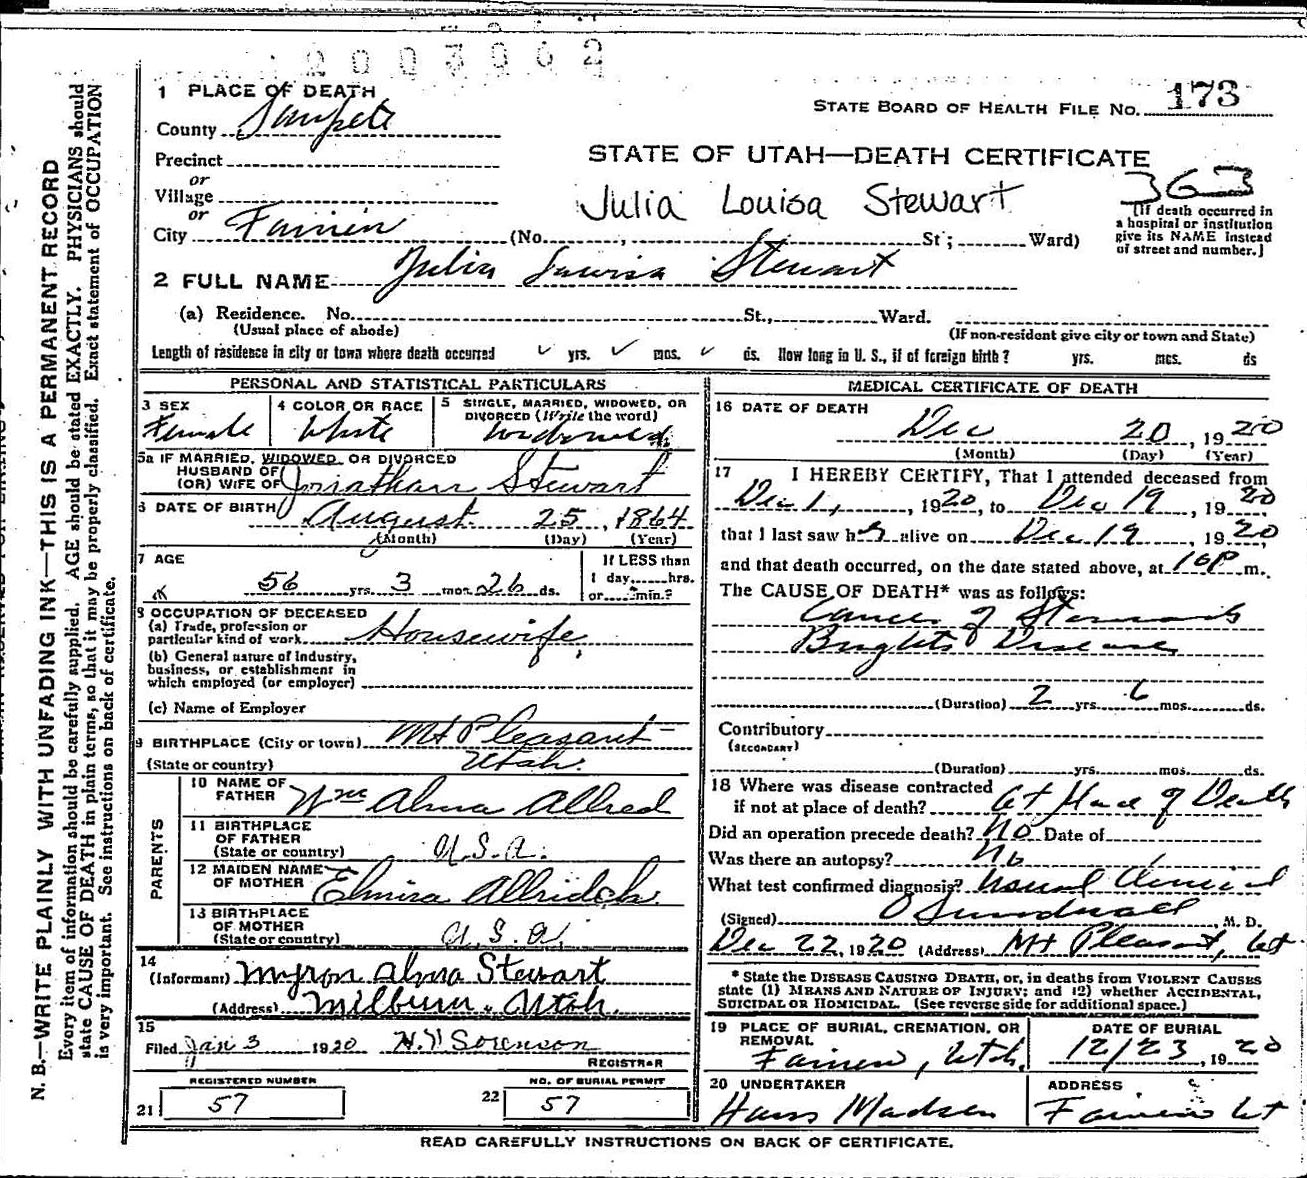 2003062
1 PLACE OF DEATH
STATE BOARD OF HEALTH FILE NO. 173
County Sanpete
STATE OF UTAH—DEATH CERTIFICATE
Precinct
or
Village
Julia Louisa Stewart
363
or
City Fairview (No. , St; Ward)
[If death occurred in
a hospital or institution
give its NAME instead
of street and number.]
2 FULL NAME Julia Louisa Stewart
(a) Residence. No. St., Ward.
(Usual place of abode) (If non-resident give city or town and State)
Length of residence in city or town where death occurred yrs. mos. ds. How long in U. S., if of foreign birth? yrs. mos. ds
PERSONAL AND STATISTICAL PARTICULARS
3 SEX
Female
4 COLOR OR RACE
White
5 SINGLE, MARRIED, WIDOWED, OR
DIVORCED (Write the word)
widowed
5a IF MARRIED, WIDOWED OR DIVORCED
HUSBAND OF
(OR) WIFE OF Jonathan Stewart
6 DATE OF BIRTH August 25, 1864
(Month) (Day) (Year)
7 AGE
56 yrs. 3 mos. 26 ds.
If LESS than
1 day, hrs.
or min.?
8 OCCUPATION OF DECEASED
(a) Trade, profession or
particular kind of work Housewife
(b) General nature of Industry,
business, or establishment in
which employed (or employer)
(c) Name of Employer
9 BIRTHPLACE (City or town) Mt Pleasant
(State or country) Utah.
PARENTS
10 NAME OF
FATHER Wm Alma Allred
11 BIRTHPLACE
OF FATHER
(State or country) U. S. A.
12 MAIDEN NAME
OF MOTHER Elmira Alldridge
13 BIRTHPLACE
OF MOTHER
(State or country) U. S. A.
14
(Informant) Myron Alma Stewart
(Address) Milburn, Utah.
15
Filed Jan 3 1920 H. Sorenson
REGISTRAR
REGISTERED NUMBER
21 57
NO. OF BURIAL PERMIT
22 57
MEDICAL CERTIFICATE OF DEATH
16 DATE OF DEATH
Dec 20, 1920
(Month) (Day) (Year)
17 I HEREBY CERTIFY, That I attended deceased from
Dec 1, 1920, to Dec 19, 1920
that I last saw her alive on Dec 19, 1920,
and that death occurred, on the date stated above, at 10P m.
The CAUSE OF DEATH* was as follows:
Cancer of Stomach
Brights Disease
(Duration) 2 yrs. 6 mos. ds.
Contributory
(SECONDARY)
(Duration) yrs. mos. ds.
18 Where was disease contracted
if not at place of death? at place of Death
Did an operation precede death? No Date of
Was there an autopsy? No
What test confirmed diagnosis? Usual Clinical
(Signed) O Sundwall M. D.
Dec 22, 1920 (Address) Mt Pleasant, Ut
* State the DISEASE CAUSING DEATH, or, in deaths from VIOLENT CAUSES
state (1) MEANS AND NATURE OF INJURY; and (2) whether ACCIDENTAL,
SUICIDAL OR HOMICIDAL. (See reverse side for additional space.)
19 PLACE OF BURIAL, CREMATION, OR
REMOVAL
Fairview, Utah.
DATE OF BURIAL
12/23, 1920
20 UNDERTAKER
Hans Madsen
ADDRESS
Fairview Ut
READ CAREFULLY INSTRUCTIONS ON BACK OF CERTIFICATE.
N. B.—WRITE PLAINLY WITH UNFADING INK—THIS IS A PERMANENT RECORD
Every item of information should be carefully supplied. AGE should be stated EXACTLY. PHYSICIANS should
state CAUSE OF DEATH in plain terms, so that it may be properly classified. Exact statement of OCCUPATION
is very important. See instructions on back of certificate.